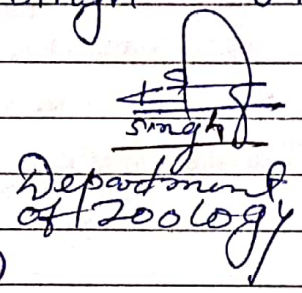 singh
Department
of Zoology